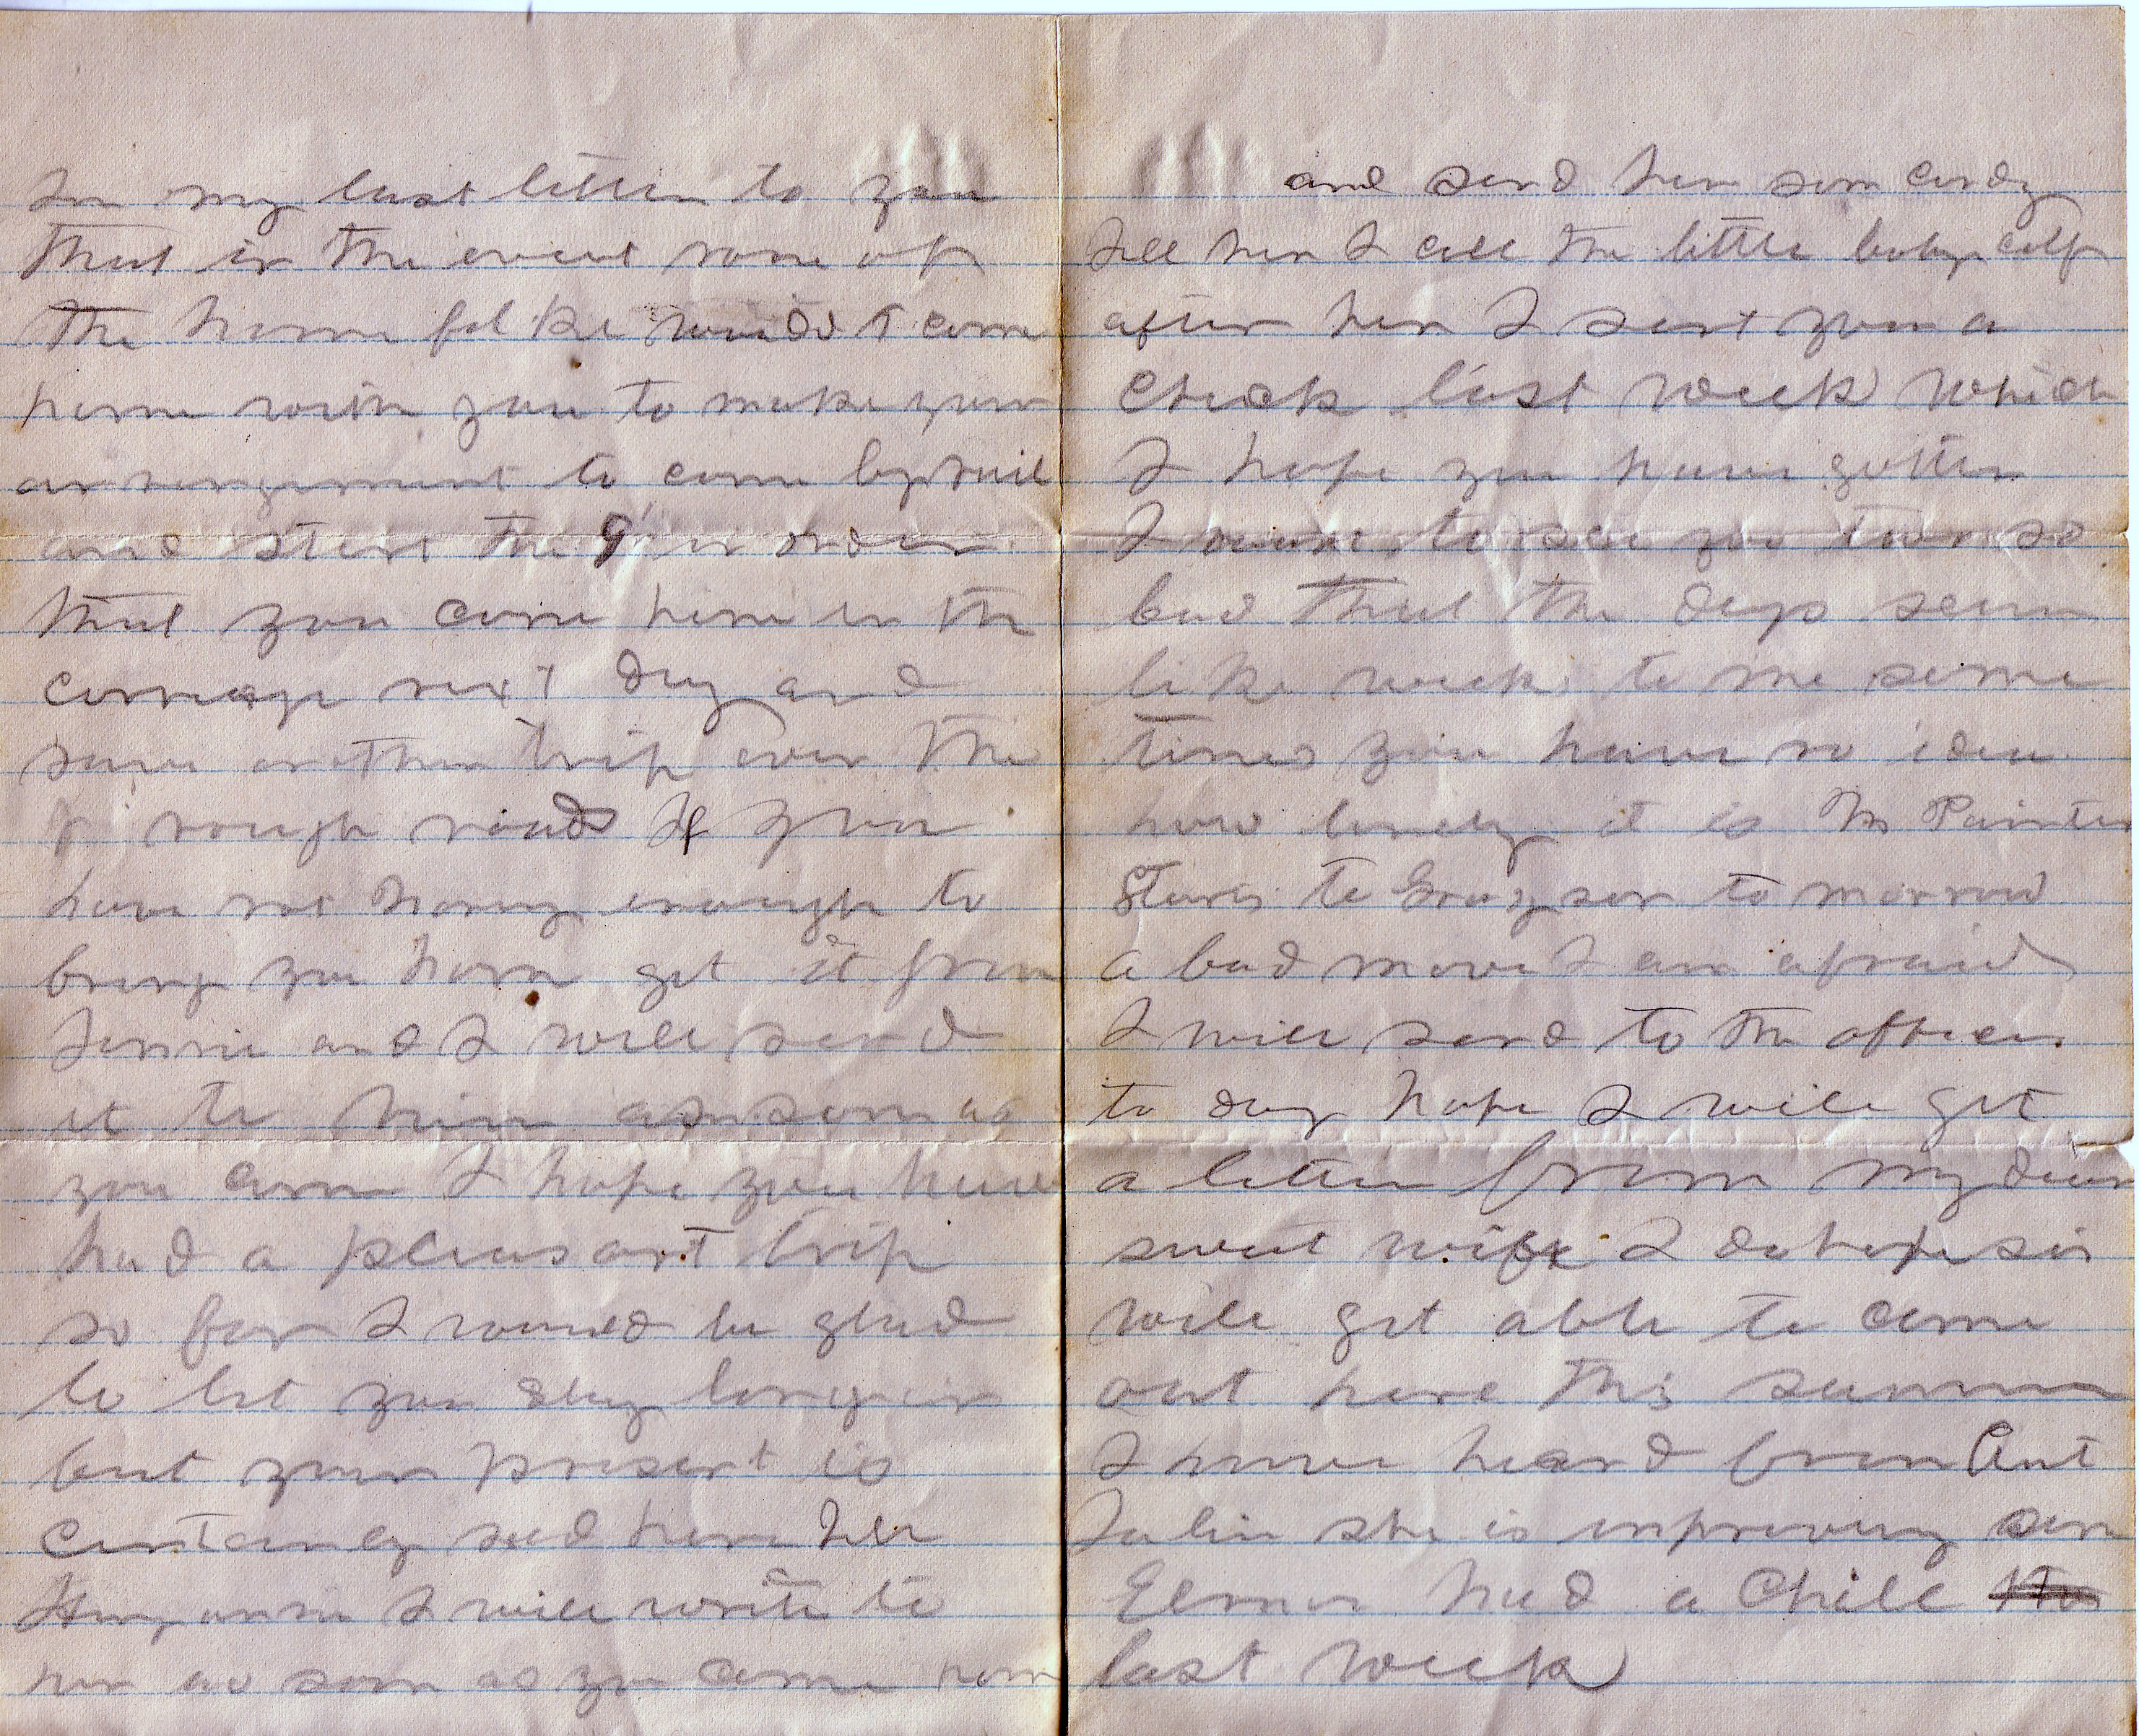 In my last letter to you
that in the event none of
the home folks would't come
home with you to make your
arrangement to come by rail
and start the 9 in order
that you come here in the
carriage next day and
save another trip over the
rough roads If you
have not mony enough to
bring you hom get it from
Jimmie and I will send
it to him as soon as
you come I hope you have
had a pleasant trip
so far I would be glad
to let you stay longer
but your present is
certainly need here tell
I will write to
her as soon as you come hom
and send her som candy
Tell her I call the little baby calf
after her I sent you a
Check last week which
I hope you have gotten
I want to see you two so
bad that the days seem
like week to me some
times you have no idea
how lonely it is Mr Painter
Starts to Grayson to morrow
a bad move I am afraid
I will send to the office
to day hope I will get
a letter from my dear
sweet wife I do hope sis
will get able to come
out here this summer
I have heard from Ant
Julia she is improving som
Elmer had a Chill
last week